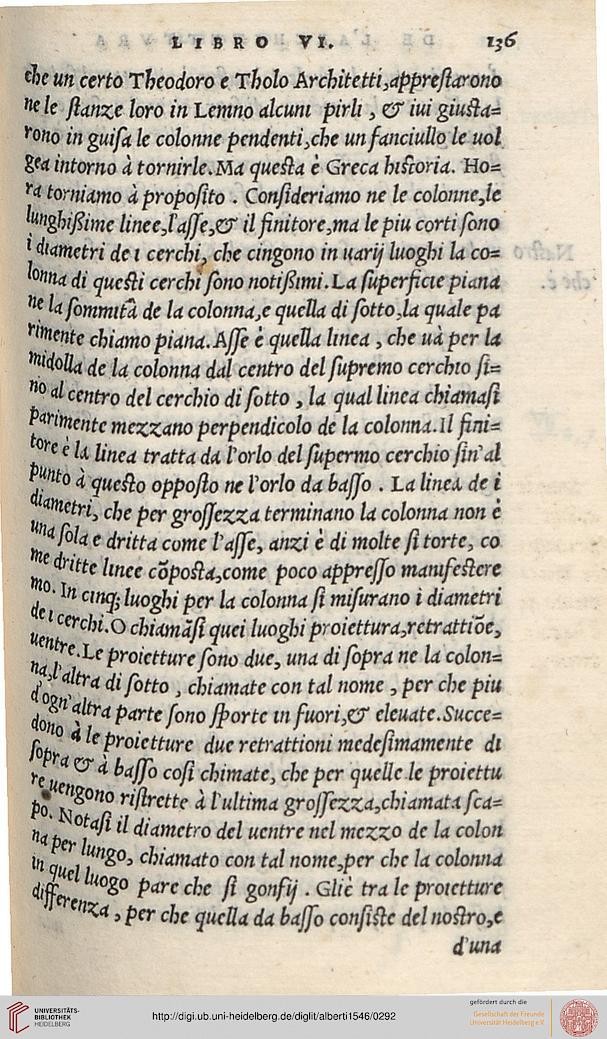 LIBRO VI. 136
che un certo Theodoro e Tholo Architetti, appreſtarono
ne le ſtanze loro in Lemno alcuni pirli, & iui giuſta=
rono in guiſa le colonne pendenti, che un fanciullo le uol
gea intorno à tornirle. Ma queſta è Greca hiſtoria. Ho=
ra torniamo à propoſito. Conſideriamo ne le colonne, le
lunghißime linee, l'aſſe, & il finitore, ma le piu corti ſono
i diametri de i cerchi, che cingono in uarij luoghi la co=
lonna di queſti cerchi ſono notißimi. La ſuperficie piana
ne la ſommità de la colonna, e quella di ſotto, la quale pa
rimente chiamo piana. Aſſe è quella linea, che uà per la
midolla de la colonna dal centro del ſupremo cerchio ſi=
no al centro del cerchio di ſotto, la qual linea chiamaſi
parimente mezzano perpendicolo de la colonna. Il fini=
tore è la linea tratta da l'orlo del ſupermo cerchio ſin'al
punto à queſto oppoſto ne l'orlo da baſſo. La linea de i
diametri, che per groſſezza terminano la colonna non è
una ſola e dritta come l'aſſe, anzi è di molte ſi torte, co
me dritte linee cõpoſta, come poco appreſſo manifeſtere
mo. In cinq; luoghi per la colonna ſi miſurano i diametri
de i cerchi. O chiamãſi quei luoghi proiettura, retrattiõe,
uentre. Le proietture ſono due, una di ſopra ne la colon=
na, l'altra di ſotto, chiamate con tal nome, per che piu
d'ogn'altra parte ſono ſporte in fuori, & eleuate. Succe=
dono à le proietture due retrattioni medeſimamente di
ſopra & à baſſo coſi chimate, che per quelle le proiettu
re uengono riſtrette à l'ultima groſſezza, chiamata ſca=
po. Notaſi il diametro del uentre nel mezzo de la colon
na per lungo, chiamato con tal nome, per che la colonna
in quel luogo pare che ſi gonfij. Gliè tra le proietture
differenza, per che quella da baſſo conſiſte del noſtro, e
d'una
UNIVERSITÄTS-
BIBLIOTHEK
HEIDELBERG
http://digi.ub.uni-heidelberg.de/diglit/alberti1546/0292
gefördert durch die
Gesellschaft der Freunde
Universität Heidelberg e.V.